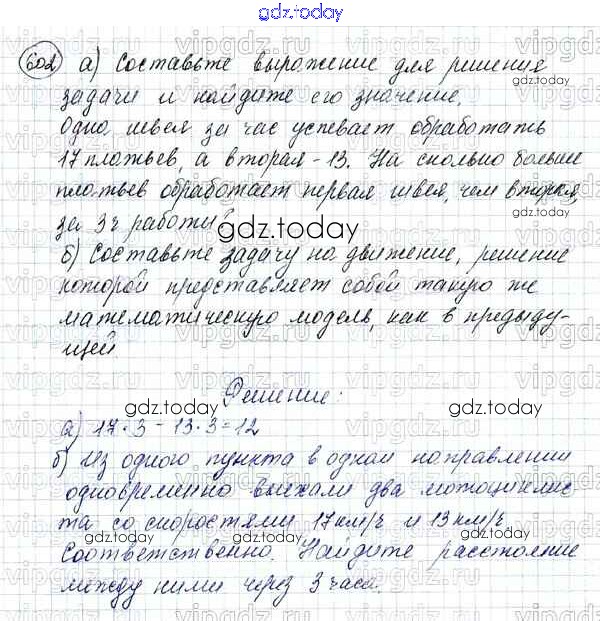 gdz.today
602 а) Составьте выражение для решения
задачи и найдите его значение.
Одна швея за час успевает обработать
17 платьев, а вторая - 13. На сколько больше
платьев обработает первая швея, чем вторая,
за 3ч работы?
gdz.today
б) Составьте задачу на движение, решение
которой представляет собой такую же
математическую модель, как в предыду-
щей
Решение:
gdz.today
а) 17·3-13·3=12
б) Из одного пункта в одном направлении
одновременно выехали два мотоциклис-
та со скоростями 17км/ч и 13км/ч
соответственно. Найдите расстояние
между ними через 3 часа.
gdz.today